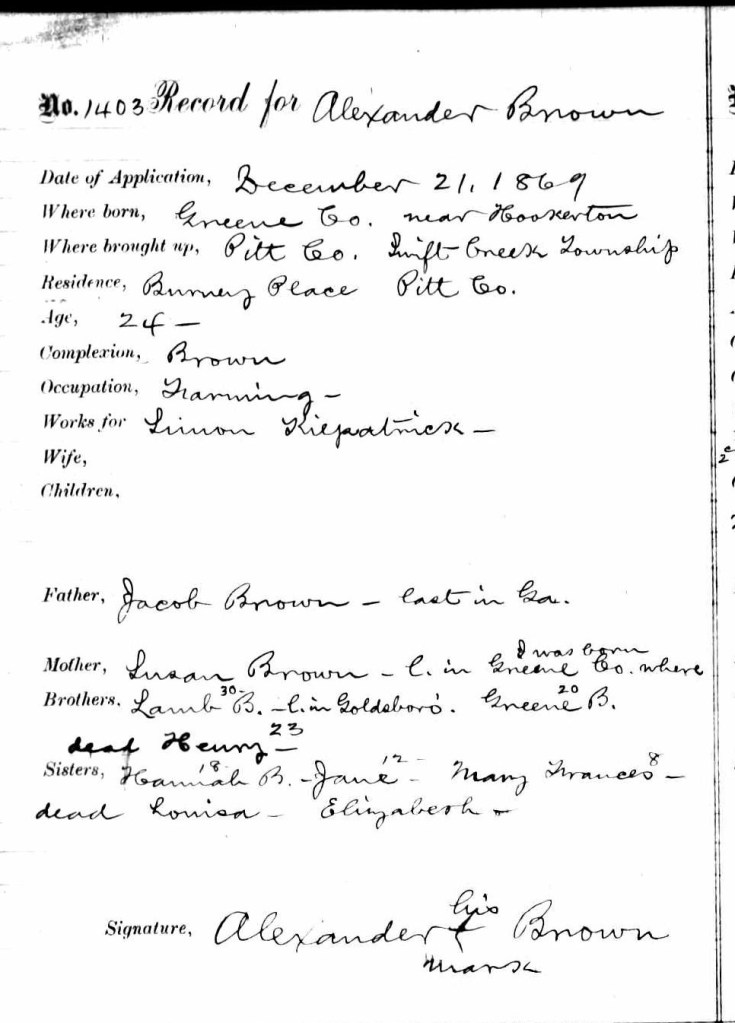 No. 1403 Record for Alexander Brown
Date of Application, December 21, 1869
Where born, Greene Co. near Hookerton
Where brought up, Pitt Co. Swift Creek Township
Residence, Burney Place Pitt Co.
Age, 24 —
Complexion, Brown
Occupation, Farming —
Works for Simon Kilpatrick —
Wife,
Children,
Father, Jacob Brown — last in Ga.
I was born
Mother, Susan Brown — l. in Greene Co. where
Brothers, Lamb 30 B. — l. in Goldsboro'. Greene 20 B.
dead Henry — 23
Sisters, Hannah 18 B. — Jane 12 — Mary Frances 8 —
dead Louisa — Elizabeth —
his
Signature, Alexander + Brown
mark